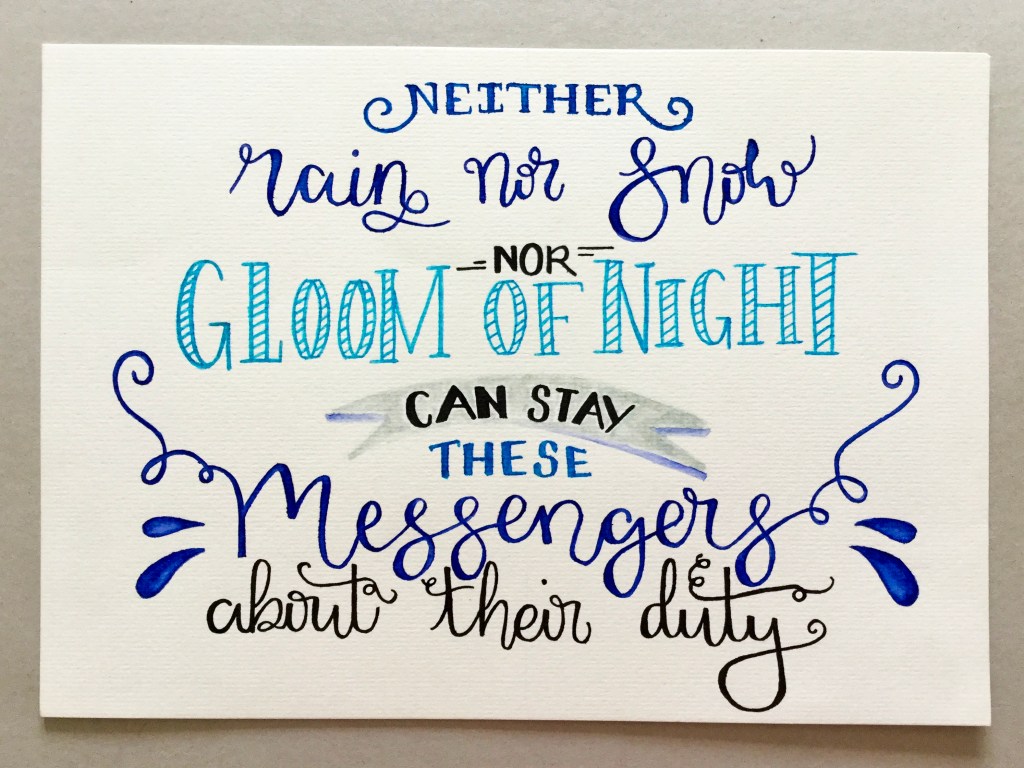 NEITHER
rain nor snow
NOR
GLOOM OF NIGHT
CAN STAY
THESE
Messengers
about their duty